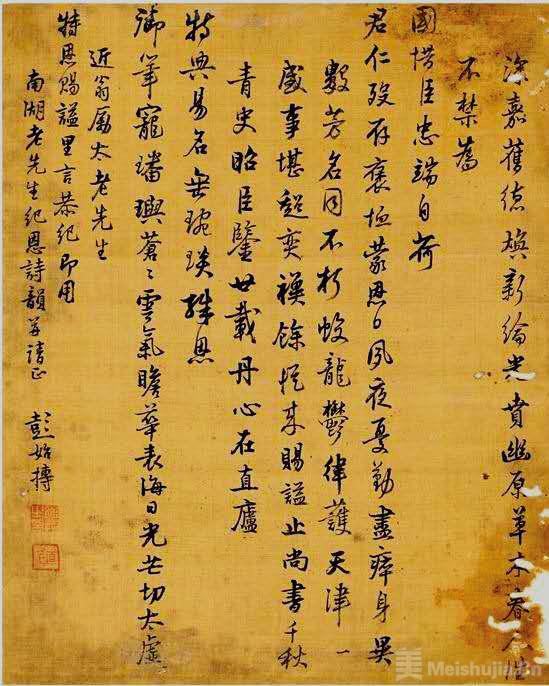 深嘉舊德煥新綸光賁幽原草木春
不禁
國惜臣忠端自荷
君仁歿存褒恤蒙恩日夙夜憂勤盡瘁身異
數芳名同不朽蛟龍鬱律護天津 一
盛事堪超奕禩餘從來賜謚止尚書千秋
青史昭臣鑒廿載丹心在直廬
特典易名無琬琰殊恩
御筆寵璠璵蒼〻雲氣瞻華表海日光芒切太虛
近翁厲太老先生
特恩賜謚里言恭紀即用
南湖老先生紀恩詩韻并請正 彭始摶
美 Meishujia.cn